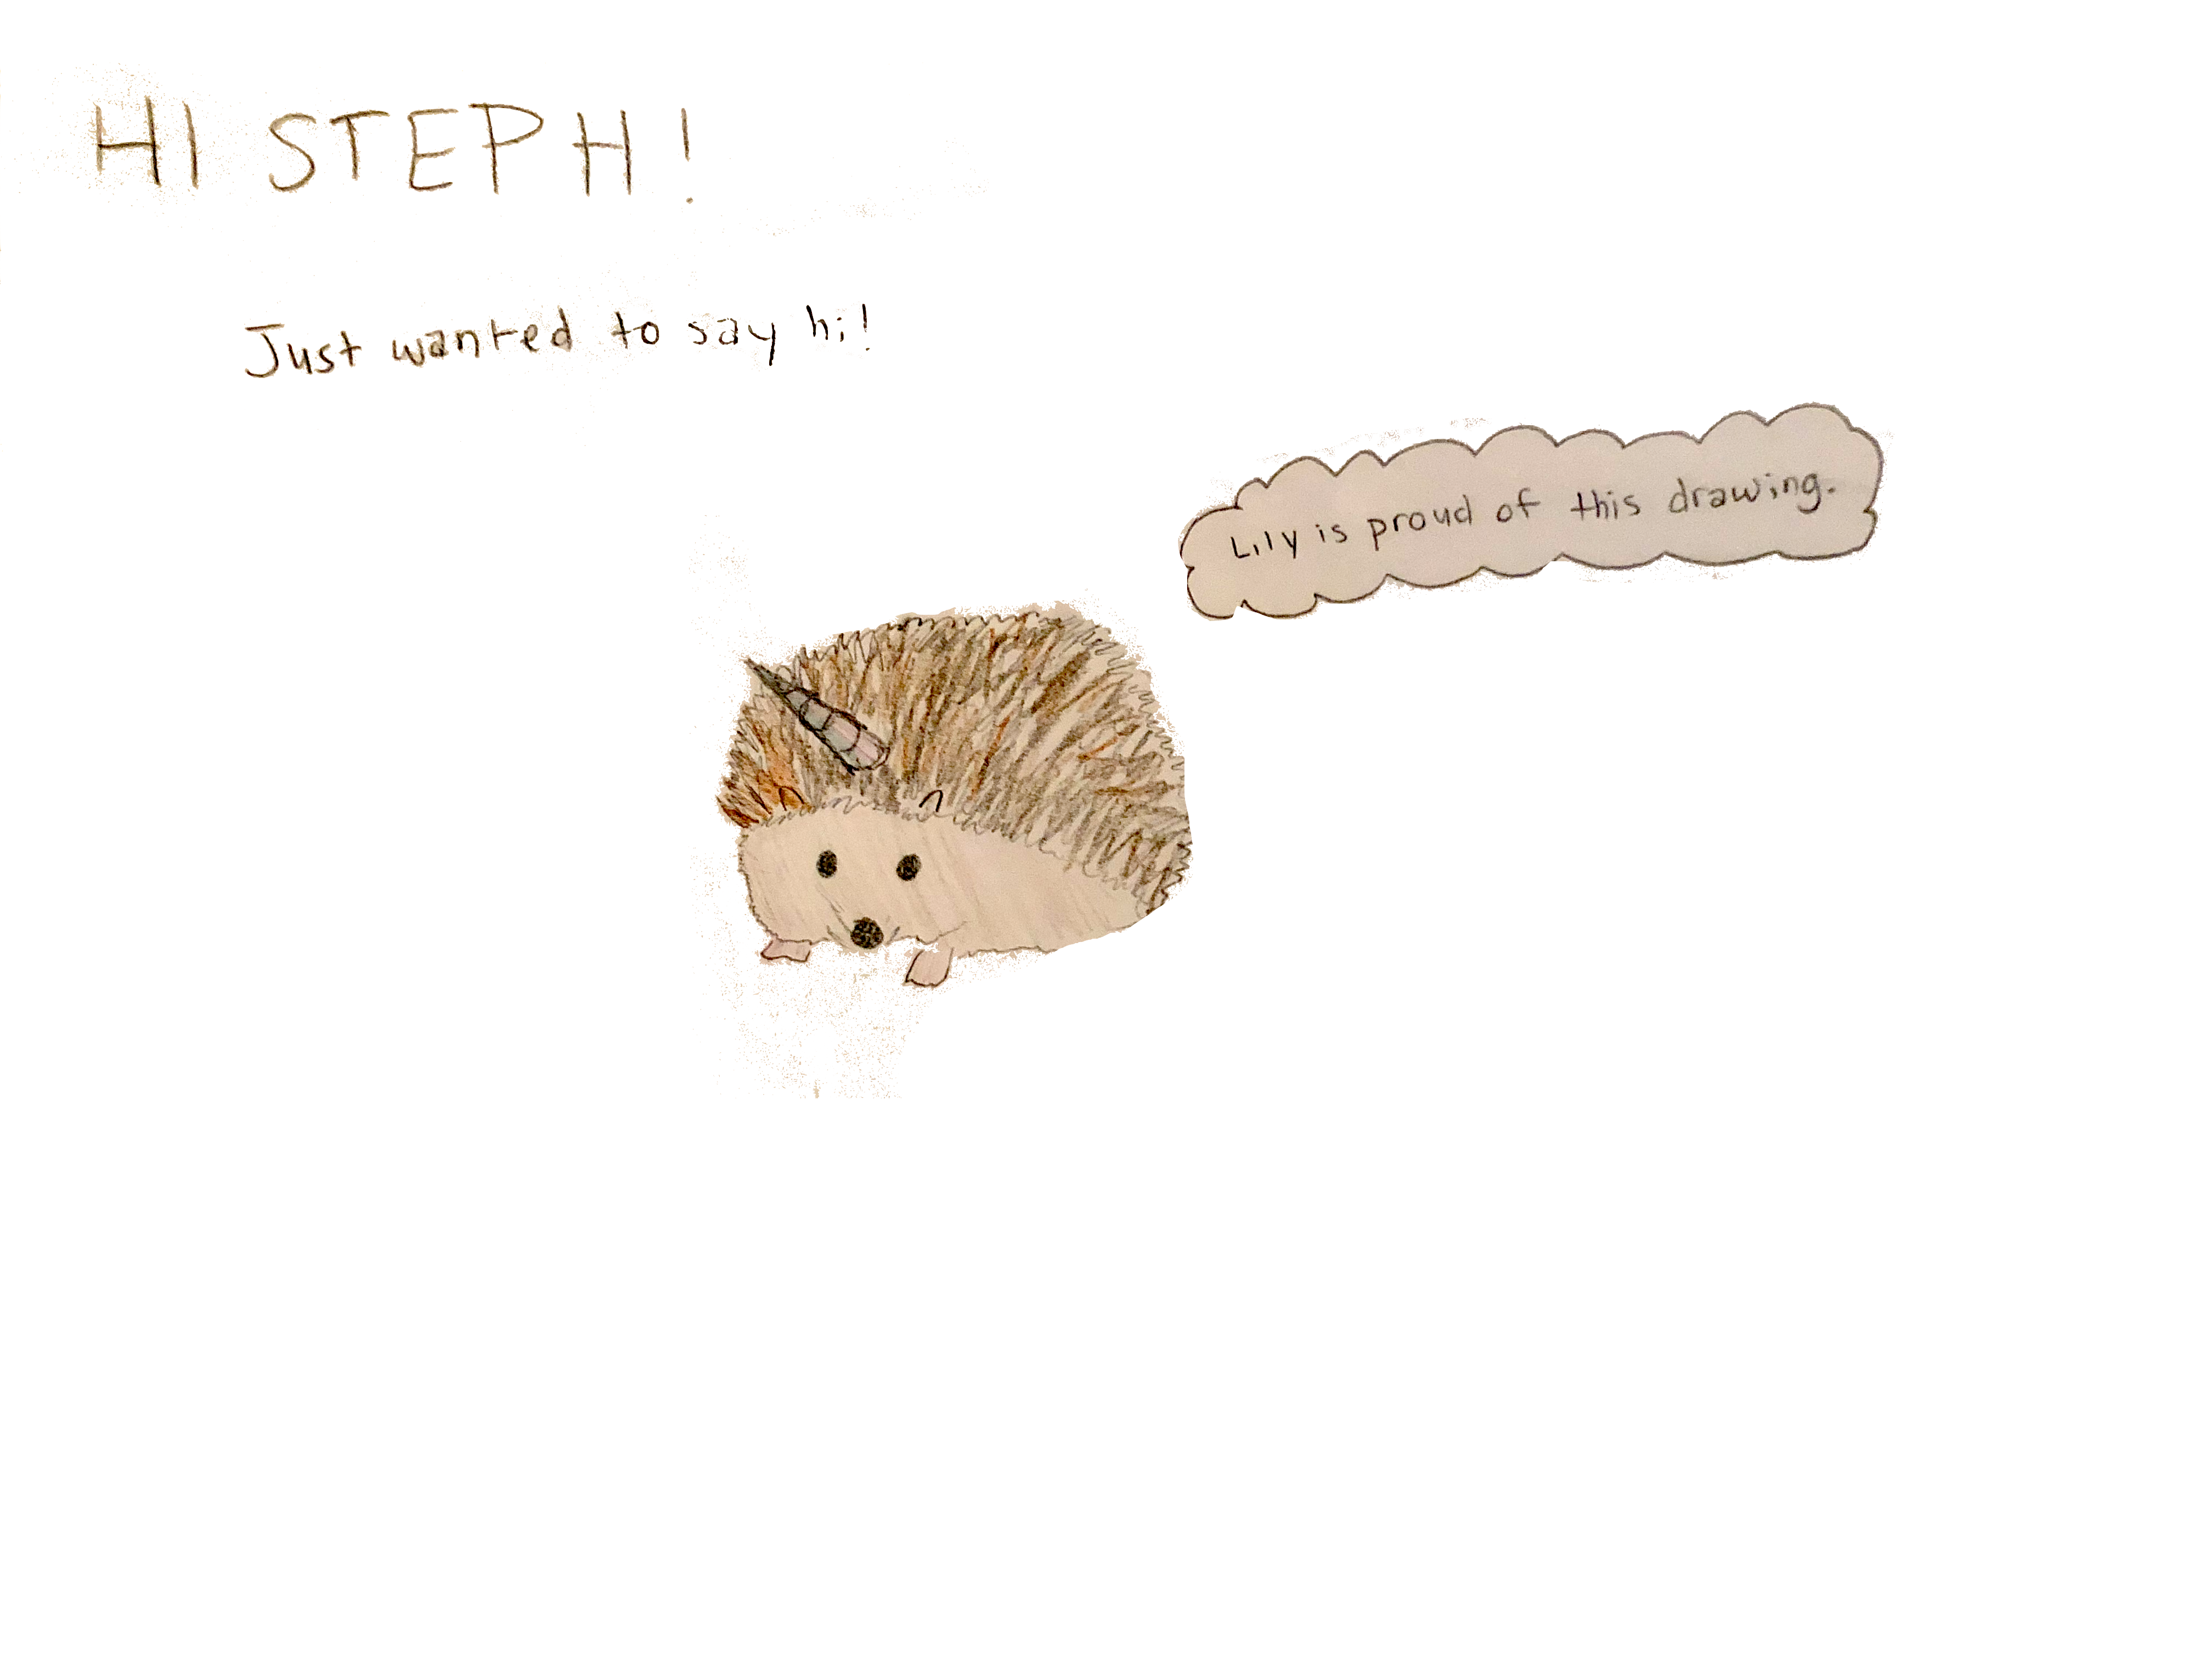 HI STEPH!
Just wanted to say hi!
Lily is proud of this drawing.